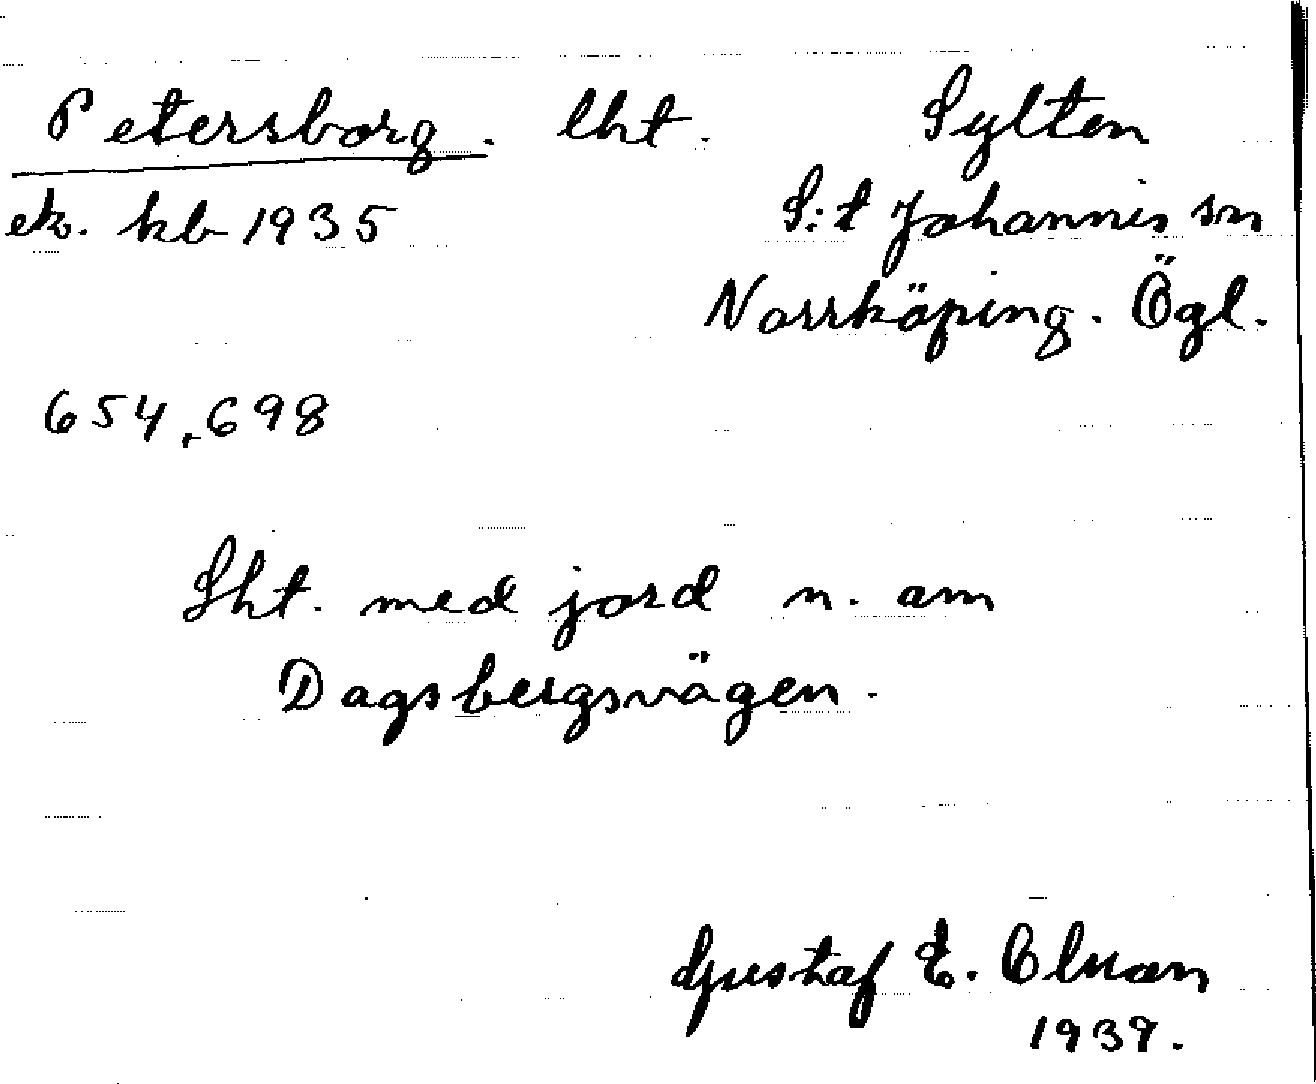 Petersborg. lht. Sylten
ek. kb 1935 S:t Johannis sn
Norrköping. Ögl.
654,698
Lht. med jord n. om
Dagsbergsvägen.
Gustaf E.
1939.